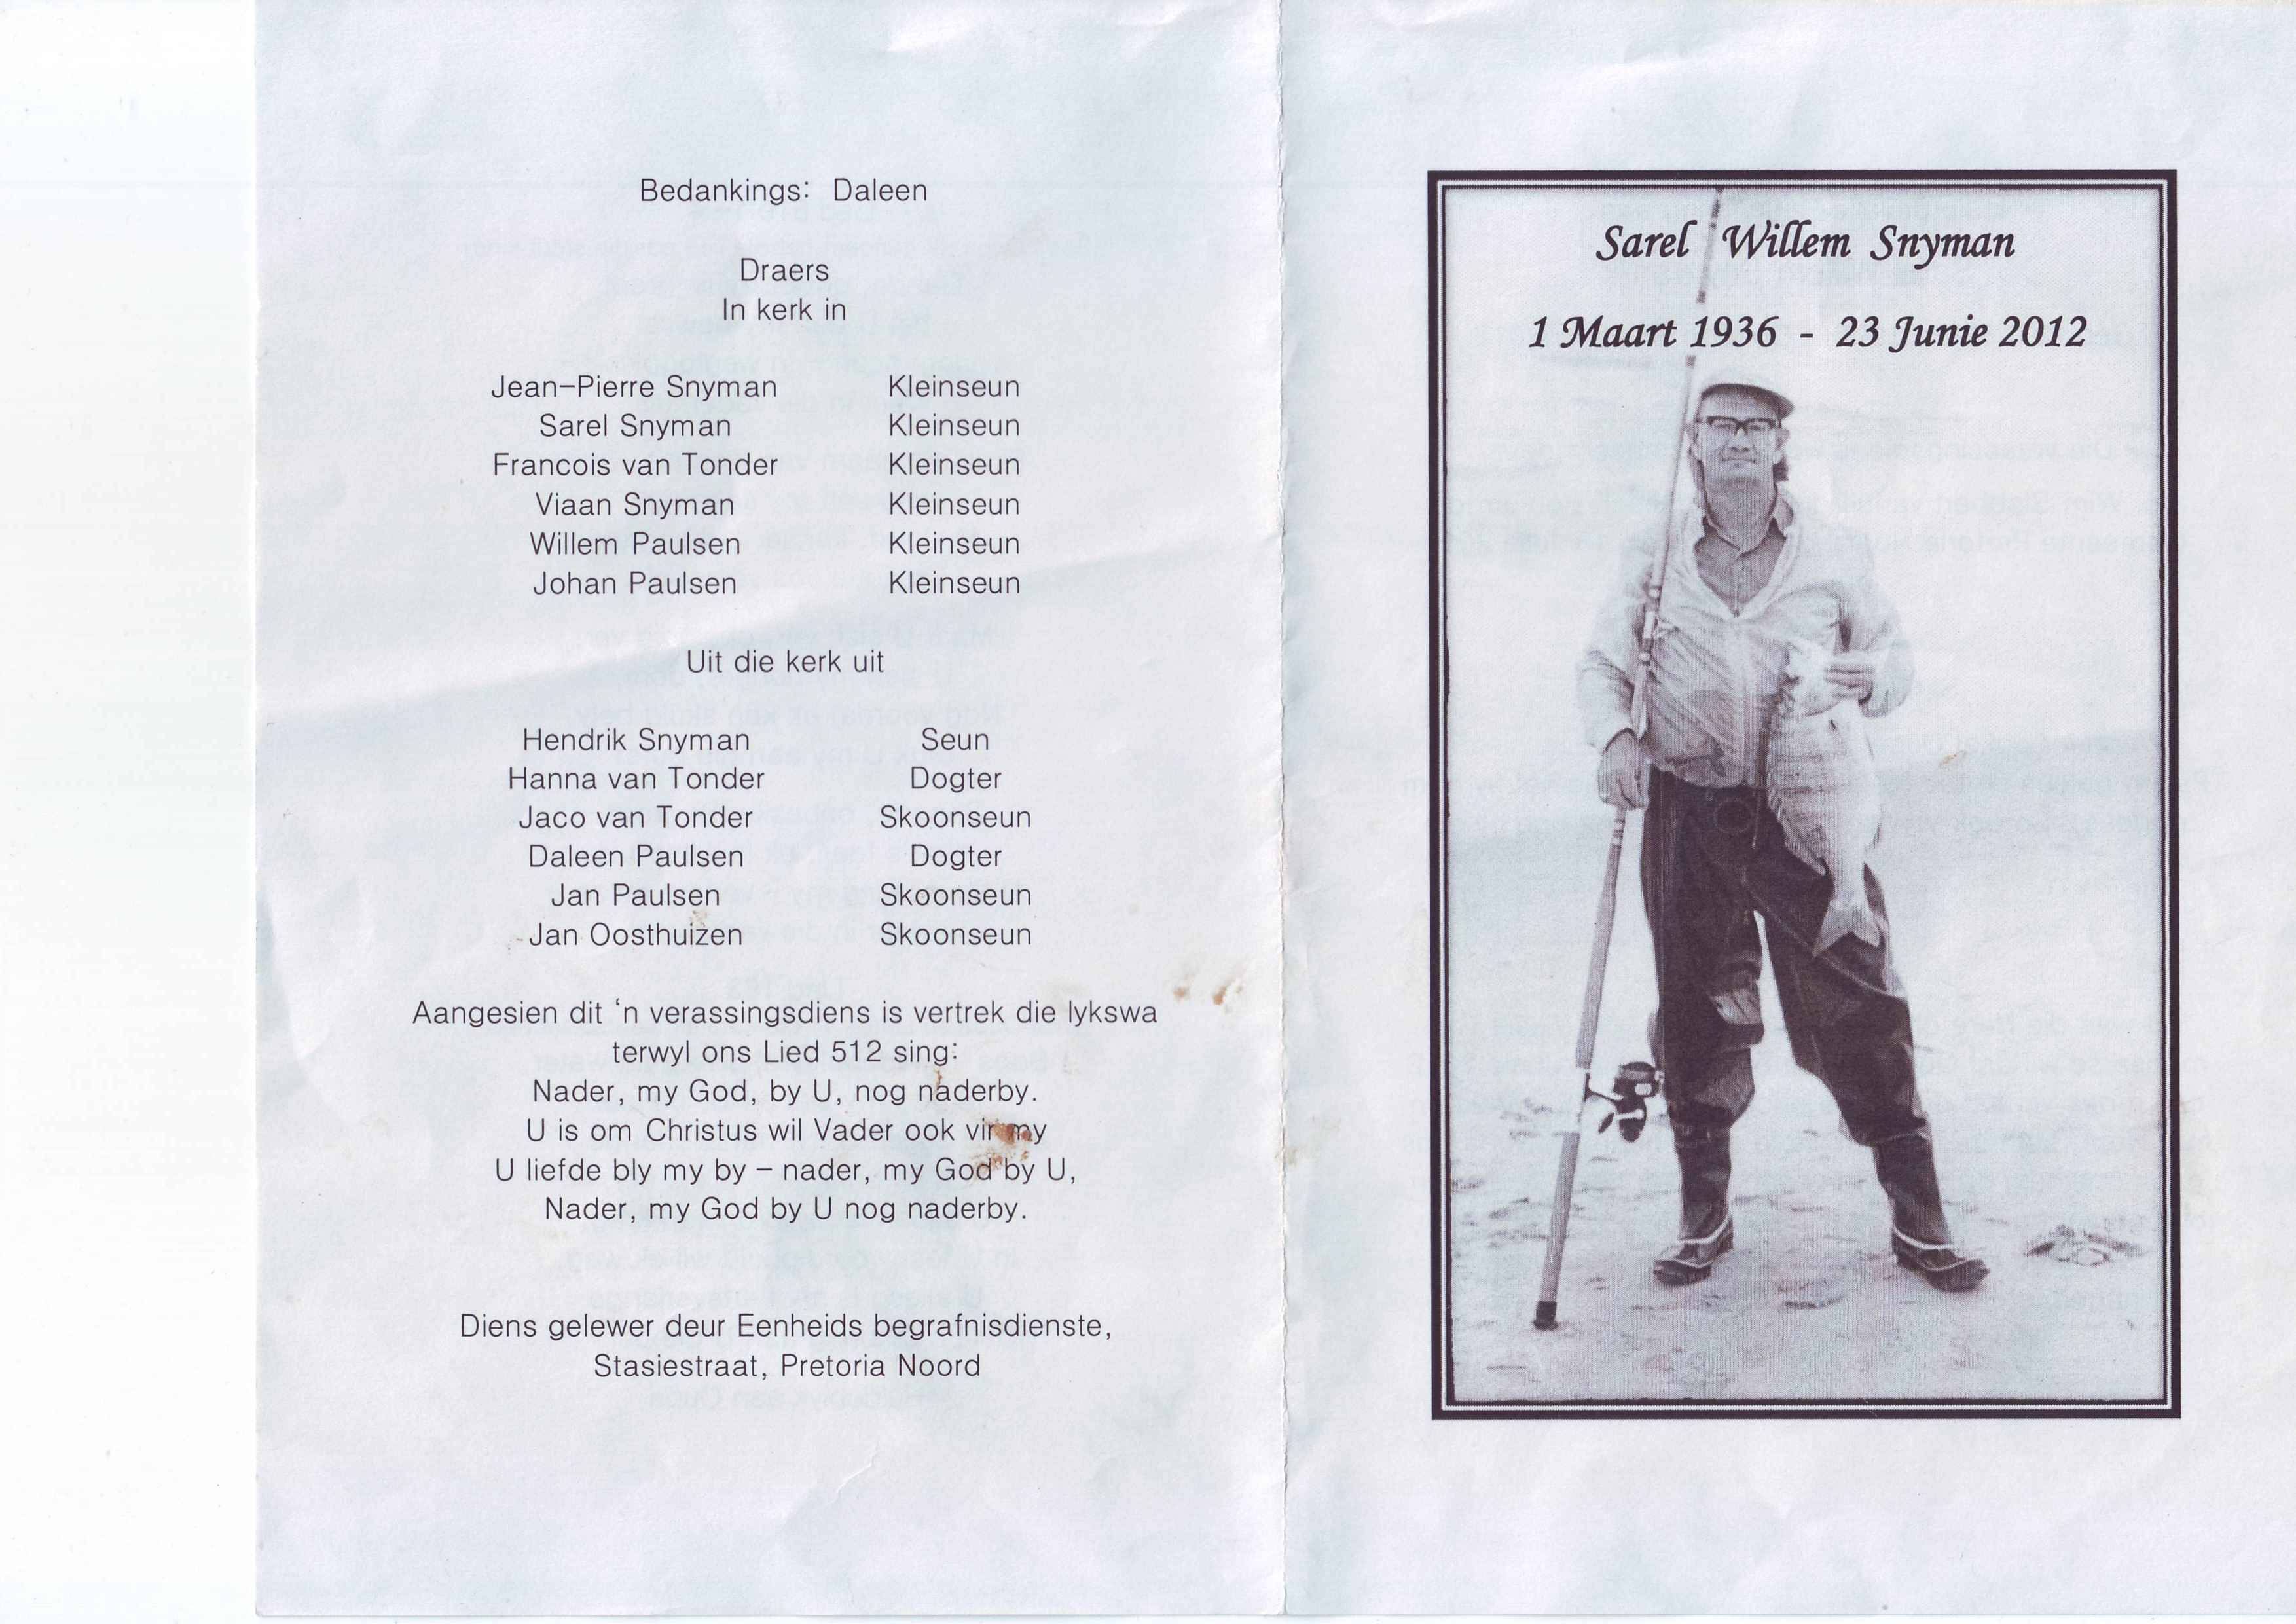 Bedankings: Daleen
Draers
In kerk in
Jean-Pierre Snyman Kleinseun
Sarel Snyman Kleinseun
Francois van Tonder Kleinseun
Viaan Snyman Kleinseun
Willem Paulsen Kleinseun
Johan Paulsen Kleinseun
Uit die kerk uit
Hendrik Snyman Seun
Hanna van Tonder Dogter
Jaco van Tonder Skoonseun
Daleen Paulsen Dogter
Jan Paulsen Skoonseun
Jan Oosthuizen Skoonseun
Aangesien dit 'n verassingsdiens is vertrek die lykswa
terwyl ons Lied 512 sing:
Nader, my God, by U, nog naderby.
U is om Christus wil Vader ook vir my
U liefde bly my by – nader, my God by U,
Nader, my God by U nog naderby.
Diens gelewer deur Eenheids begrafnisdienste,
Stasiestraat, Pretoria Noord
Sarel Willem Snyman
1 Maart 1936 - 23 Junie 2012